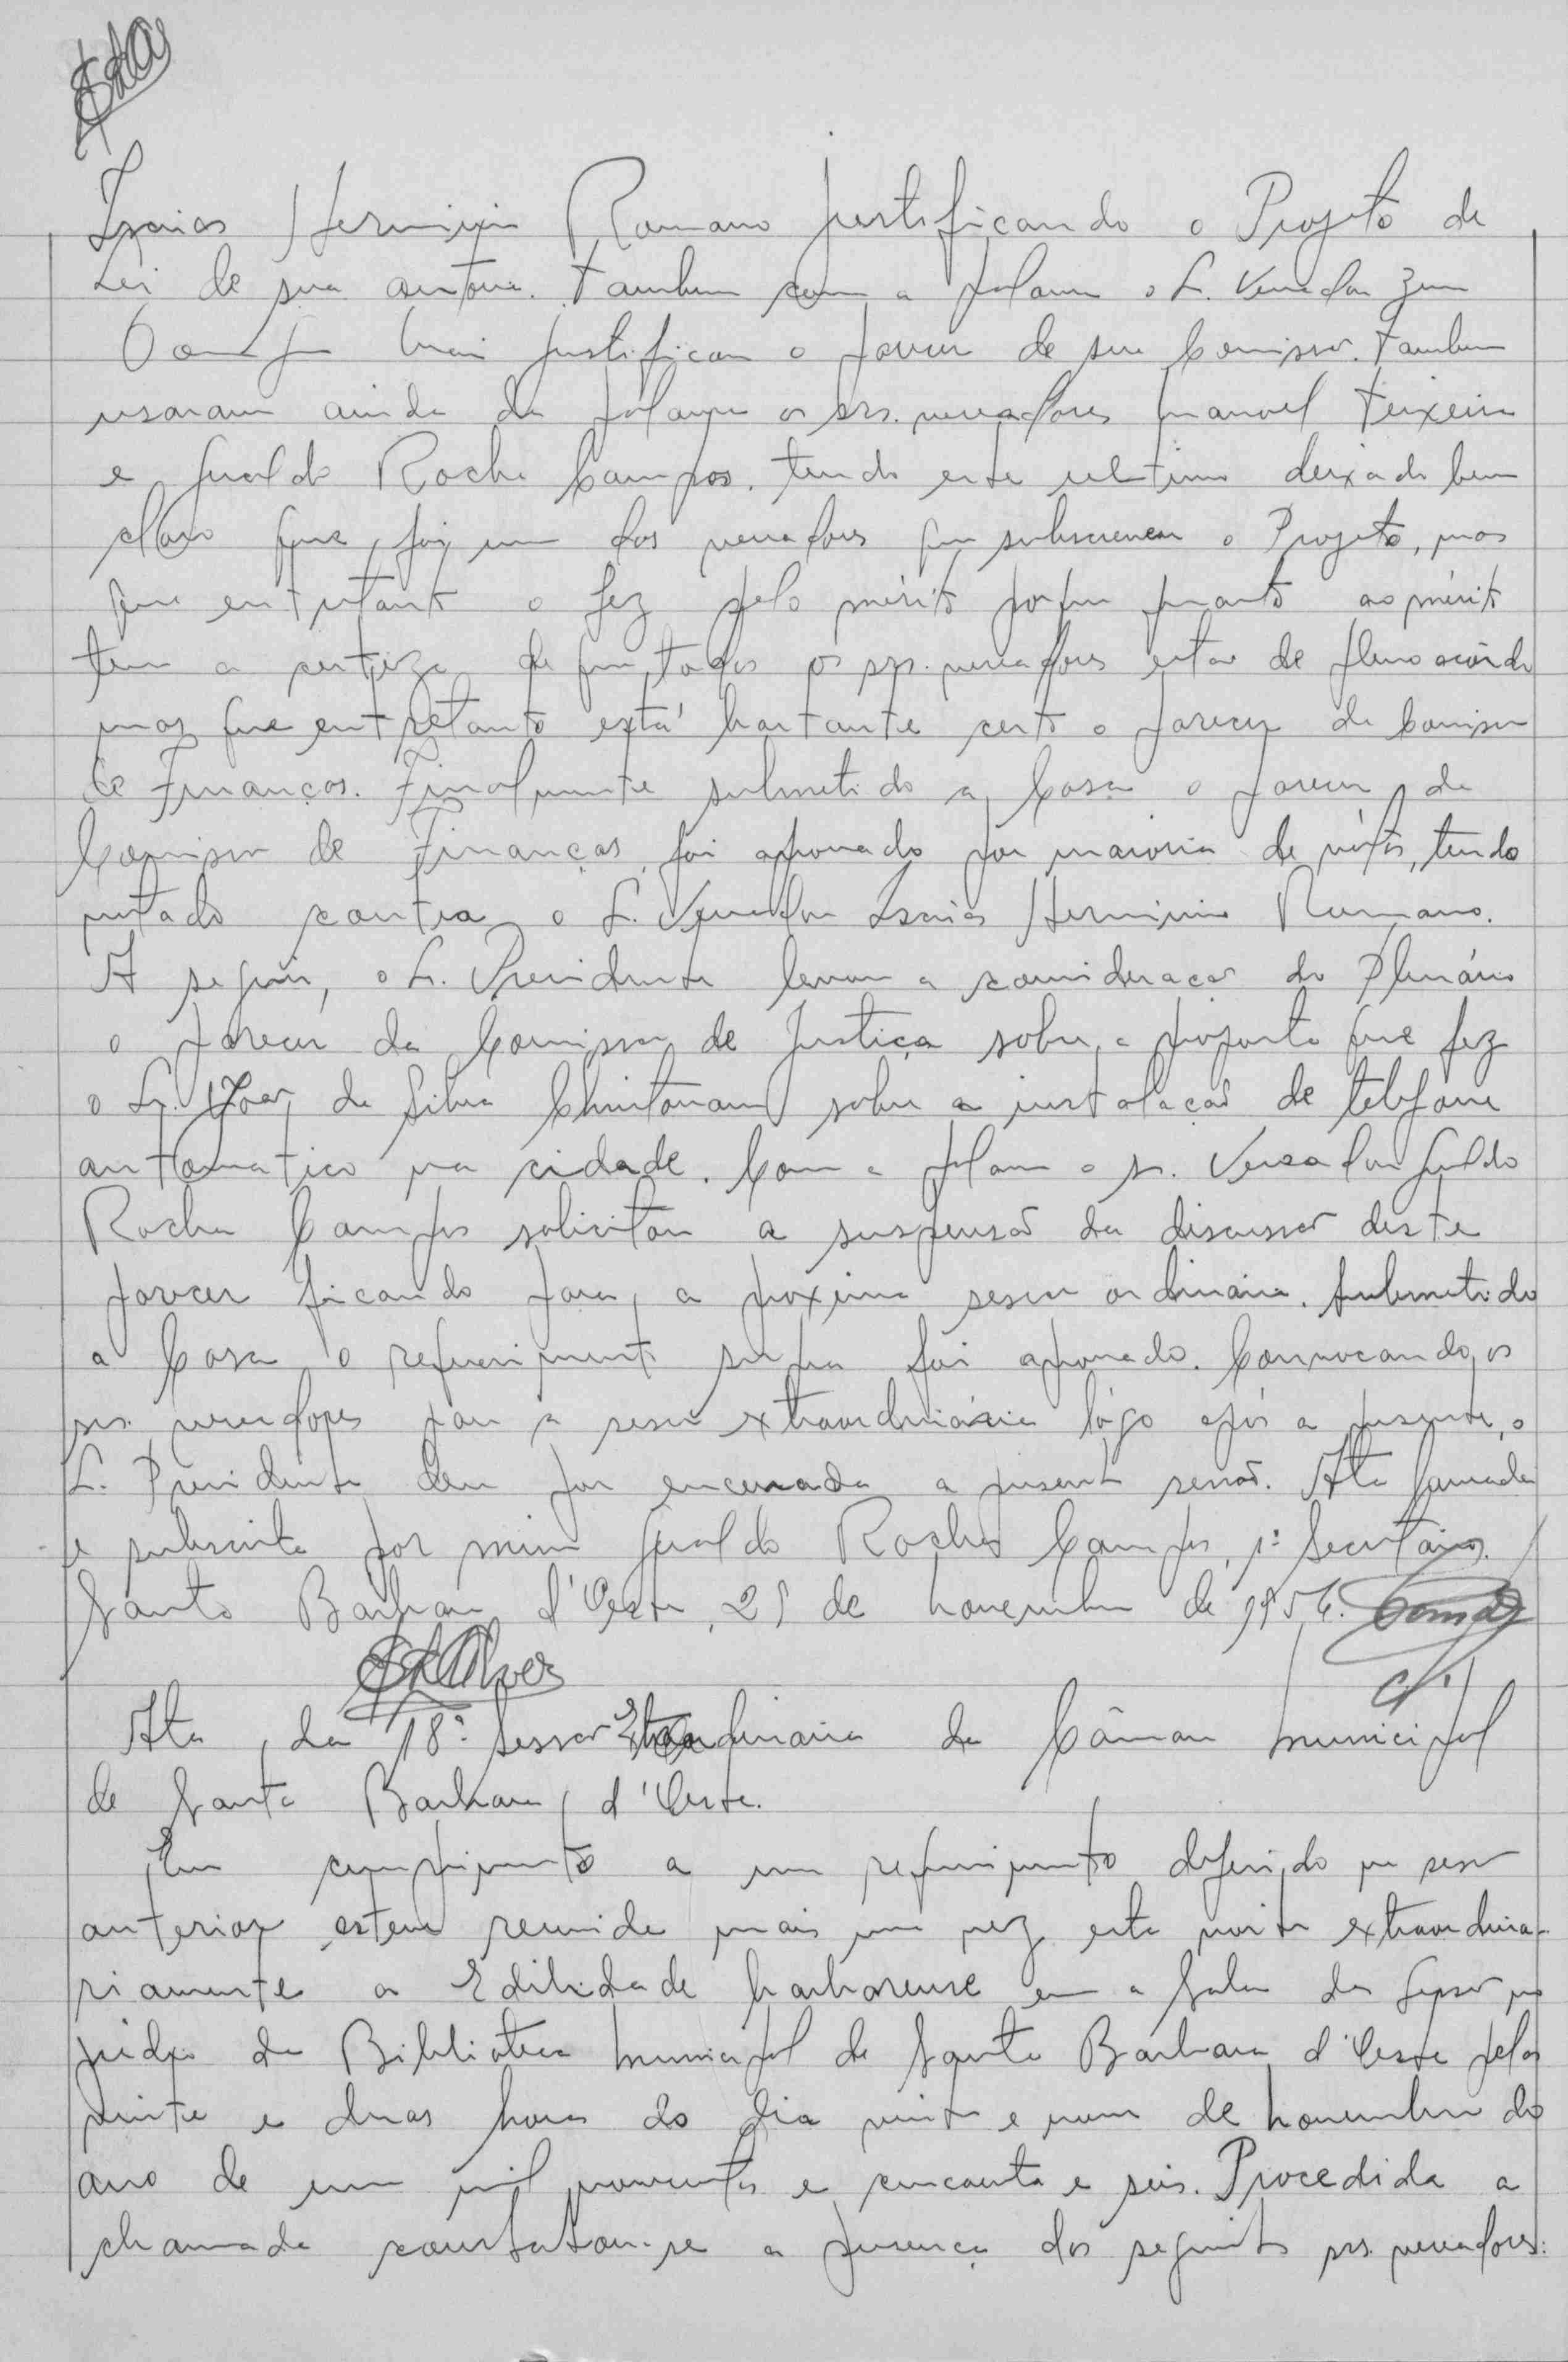 Isaias Herminio Romano justificando o Projeto de
Lei de sua autoria. Tambem com a palavra o S. Vereador
justificou o parecer de sua Comissão. Tambem
usaram ainda da palavra os srs. vereadores Manoel Teixeira
e Geraldo Rocha Campos, tendo este ultimo deixado bem
claro que foi um dos vereadores que subscreveu o Projeto, mas
que entretanto o fez pelo mérito porque quanto ao mérito
tem a certeza de que todos os srs. vereadores estão de pleno acôrdo
mas que entretanto está bastante certo o parecer da Comissão
de Finanças. Finalmente submetido a Casa o parecer da
Comissão de Finanças, foi aprovado por maioria de votos, tendo
votado contra o S. Vereador Isaias Herminio Romano.
A seguir, o S. Presidente levou a consideração do Plenário
o parecer da Comissão de Justiça sobre a proposta que fez
o Sr. da Silva sobre a instalação de telefone
automatico na cidade. Com a palavra o sr. Vereador Geraldo
Rocha Campos solicitou a suspensão da discussão deste
parecer ficando para a proxima sessão ordinaria. Submetido
a Casa o requerimento supra foi aprovado. Convocando os
srs. vereadores para a sessão extraordinária lógo após a presente, o
S. Presidente deu por encerrada a presente sessão. Ata lavrada
e subscrita por mim Geraldo Rocha Campos, 1º Secretário.
Santa Bárbara d'Oeste, 21 de novembro de 1956.
Ata da 18ª Sessão Extraordinaria da Câmara Municipal
de Santa Barbara d'Oeste.
Em cumprimento a um requerimento deferido na sessão
anterior esteve reunida mais uma vez esta noite extraordina-
riamente a Edilidade barbarense em a Sala das Sessões no
prédio da Biblioteca Municipal de Santa Bárbara d'Oeste pelas
vinte e duas horas do dia vinte e um de novembro do
ano de um mil novecentos e cincoenta e seis. Procedida a
chamada constatou-se a presença dos seguintes srs. vereadores: